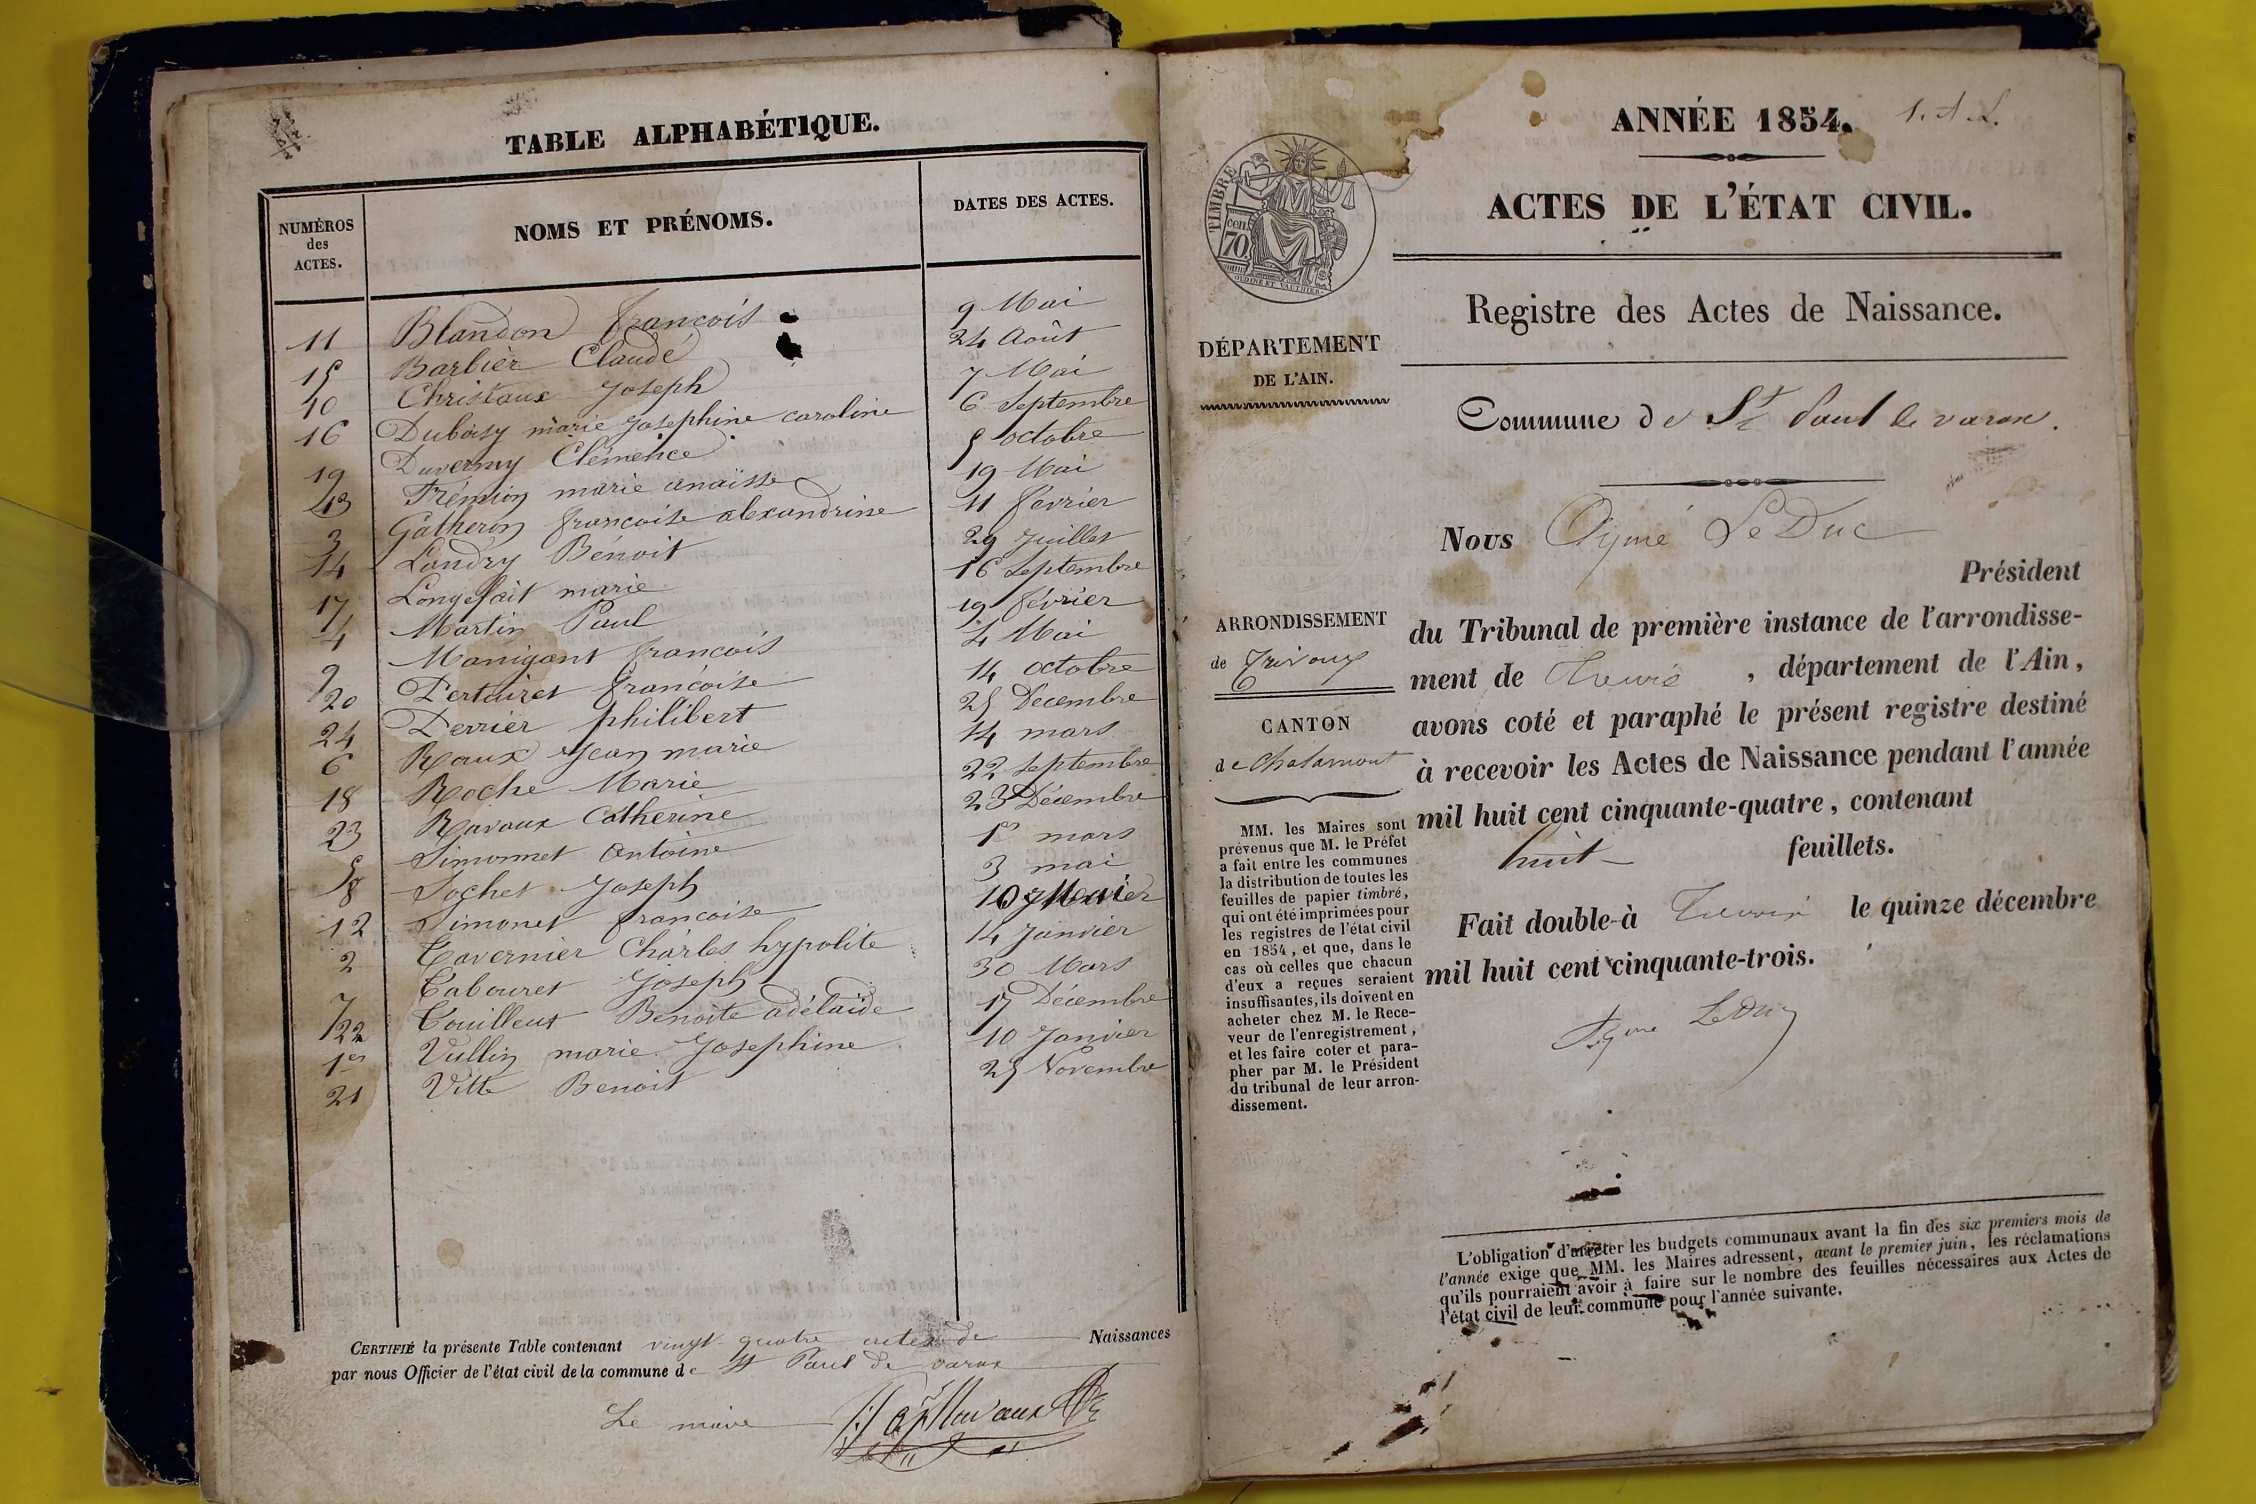 TABLE ALPHABÉTIQUE.
NUMÉROS des ACTES. NOMS ET PRÉNOMS. DATES DES ACTES.
11 Blandon françois 9 Mai
15 Barbier Claude 24 Août
10 Christaux Joseph 7 Mai
16 Duboisy marie Josephine caroline 6 Septembre
19 Duvernay Clémence 5 octobre
13 Frémion marie anaïsse 19 Mai
3 Gatheron françoise alexandrine 11 fevrier
14 Landry Bénoit 29 Juillet
17 Longefait marie 16 Septembre
4 Martin Paul 19 février
9 Manigant françois 4 Mai
20 Pertuiret françoise 14 octobre
24 Perrier philibert 25 Decembre
6 Raux Jean marie 14 mars
18 Roche Marie 22 Septembre
23 Ravaux Catherine 23 Décembre
5 Simonnet antoine 1er mars
8 Sochet Joseph 3 mai
12 Simonet françoise 10 Mai
2 Tavernier Charles hypolite 14 Janvier
7 Tabouret Joseph 30 Mars
22 Touilleux Benoite adélaïde 17 Décembre
1er Vullin marie Josephine 10 Janvier
21 Vitte Benoit 25 Novembre
CERTIFIÉ la présente Table contenant vingt quatre actes de Naissances
par nous Officier de l'état civil de la commune de St Paul de varax
Le maire
ANNÉE 1854.
ACTES DE L'ÉTAT CIVIL.
TIMBRE
70 cen.
Registre des Actes de Naissance.
DÉPARTEMENT
DE L'AIN.
Commune de St Paul de varax.
Nous Aymé LeDuc
Président
du Tribunal de première instance de l'arrondisse-
ment de Trévoux, département de l'Ain,
avons coté et paraphé le présent registre destiné
à recevoir les Actes de Naissance pendant l'année
mil huit cent cinquante-quatre, contenant
huit feuillets.
Fait double à Trévoux le quinze décembre
mil huit cent cinquante-trois.
Ayme LeDuc
ARRONDISSEMENT
de Trévoux
CANTON
de Chalamont
MM. les Maires sont
prévenus que M. le Préfet
a fait entre les communes
la distribution de toutes les
feuilles de papier timbré,
qui ont été imprimées pour
les registres de l'état civil
en 1854, et que, dans le
cas où celles que chacun
d'eux a reçues seraient
insuffisantes, ils doivent en
acheter chez M. le Rece-
veur de l'enregistrement,
et les faire coter et para-
pher par M. le Président
du tribunal de leur arron-
dissement.
L'obligation d'arrêter les budgets communaux avant la fin des six premiers mois de
l'année exige que MM. les Maires adressent, avant le premier juin, les réclamations
qu'ils pourraient avoir à faire sur le nombre des feuilles nécessaires aux Actes de
l'état civil de leur commune pour l'année suivante.